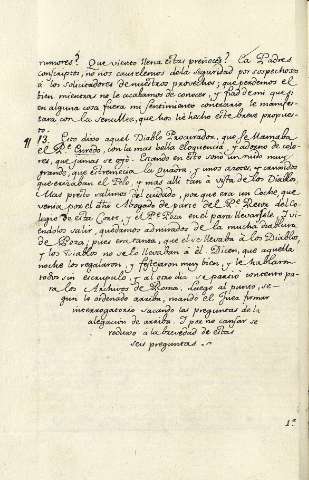 rumores? Que viento llena estas preñeces? Ea Padres
conscriptos, no nos cautelemos de la seguridad por sospechosa
á los solicitadores de nuestros provechos; que perdemos el
bien mientras no le acabamos de conocer, y fiad de mi que si
en alguna cosa fuera mi sentimiento contrario le manifes-
tara con la sencillez, que hos hé hecho este breve propues-
to.
¶ 13. Esto dixo aquel Diablo Procurador, que se llamaba
el Pe. con la mas bella eloquencia, y adorno de colo-
res, que jamas se oyó. Estando en esto sono un ruido muy
grande, que estremecia la quadra, y unos azotes, y carruidos
que erizaban el Pelo, y mas alli tan á vista de los Diablos.
Mas presto salimos del cuidado, por que era un Coche, que
venia por el año Abogado de parte del Pe. Retor del Co-
legio de esta Corte, y el Pe. Poza en el para llevarsele. Y vi-
endolos salir, quedamos admirados de la mucha diablura
de Poza; pues era tanta, que el se llevaba á los Diablos,
y los Diablos no se lo llevaban á él. Dicen que aquella
noche los regalaron, y festejaron muy bien, y le hablaron
todos sin escrupulo, y al otro dia se partió contento pa-
ra los Archivos de Roma. Luego al punto, se-
gun lo ordenado arriba, mando el Juez formar
interrogatorio sacando las preguntas de la
alegacion de arriba. I por no cansar se
reduxo á la brevedad de estas
seis preguntas.
1ª